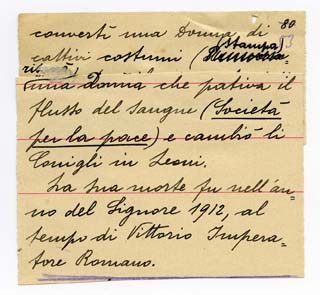 80
convertì una Donna di
53
cattivi costumi (Stampa)
una Donna che pativa il
flusso del sangue (Società
per la pace) e cambiò li
Conigli in Leoni.
La sua morte fu nell'an=
no del Signore 1912, al
tempo di Vittorio Impera=
tore Romano.